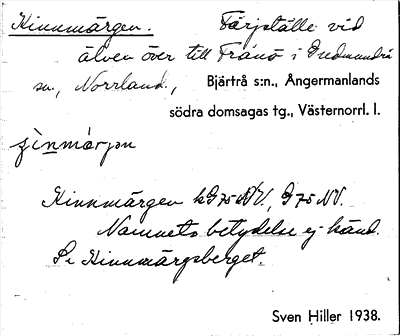 Kinnmärgen. Färjställe vid
älven över till Frånö i Gudmundrå
sn., Norrland., Bjärtrå s:n., Ångermanlands
södra domsagas tg., Västernorrl. l.
Kinnmärgen G75 NV.
Namnets betydelse ej känd.
Se Kinnmärgsberget.
Sven Hiller 1938.